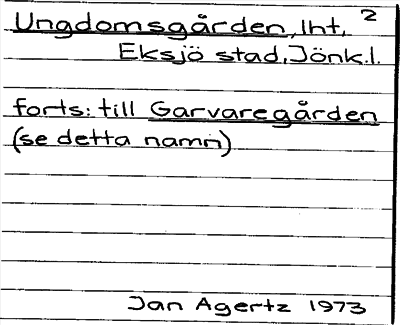 Ungdomsgården, lht. 2
Eksjö stad, Jönk.l.
forts: till Garvaregården
(se detta namn)
Jan Agertz 1973